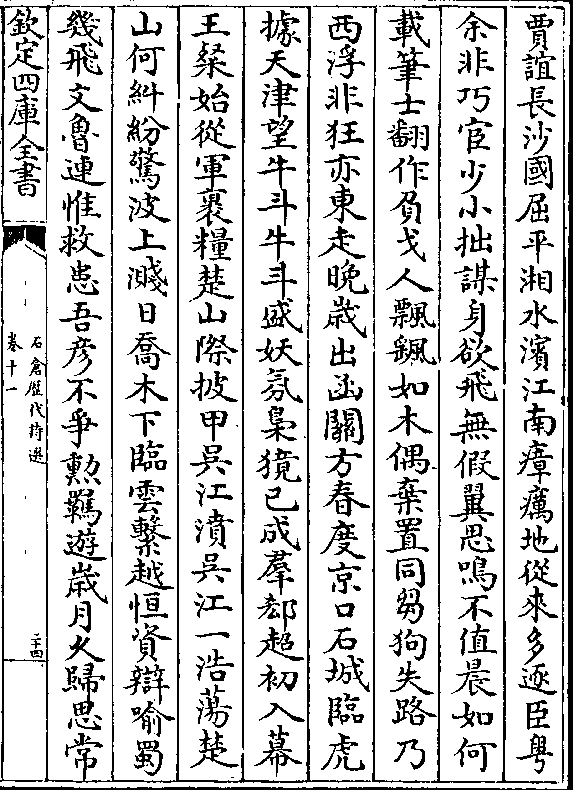 賈誼長沙國屈平湘水濱江南瘴癘地從來多逐臣粤
余非巧宦少小拙謀身欲飛無假翼思鳴不值晨如何
載筆士翻作負戈人飄飖如木偶棄置同芻狗失路乃
西浮非狂亦東走晚歲出函關方春度京口石城臨虎
據天津望牛斗牛斗盛妖氛梟獍已成羣郗超初入幕
王粲始從軍裹糧楚山際披甲吳江濆吳江一浩蕩楚
山何糾紛驚波上濺日喬木下臨雲繫越恒資辯喻蜀
幾飛文魯連惟救患吾彦不爭勲羈遊歲月久歸思常
欽定四庫全書
石倉歷代詩選
卷十一
二十四